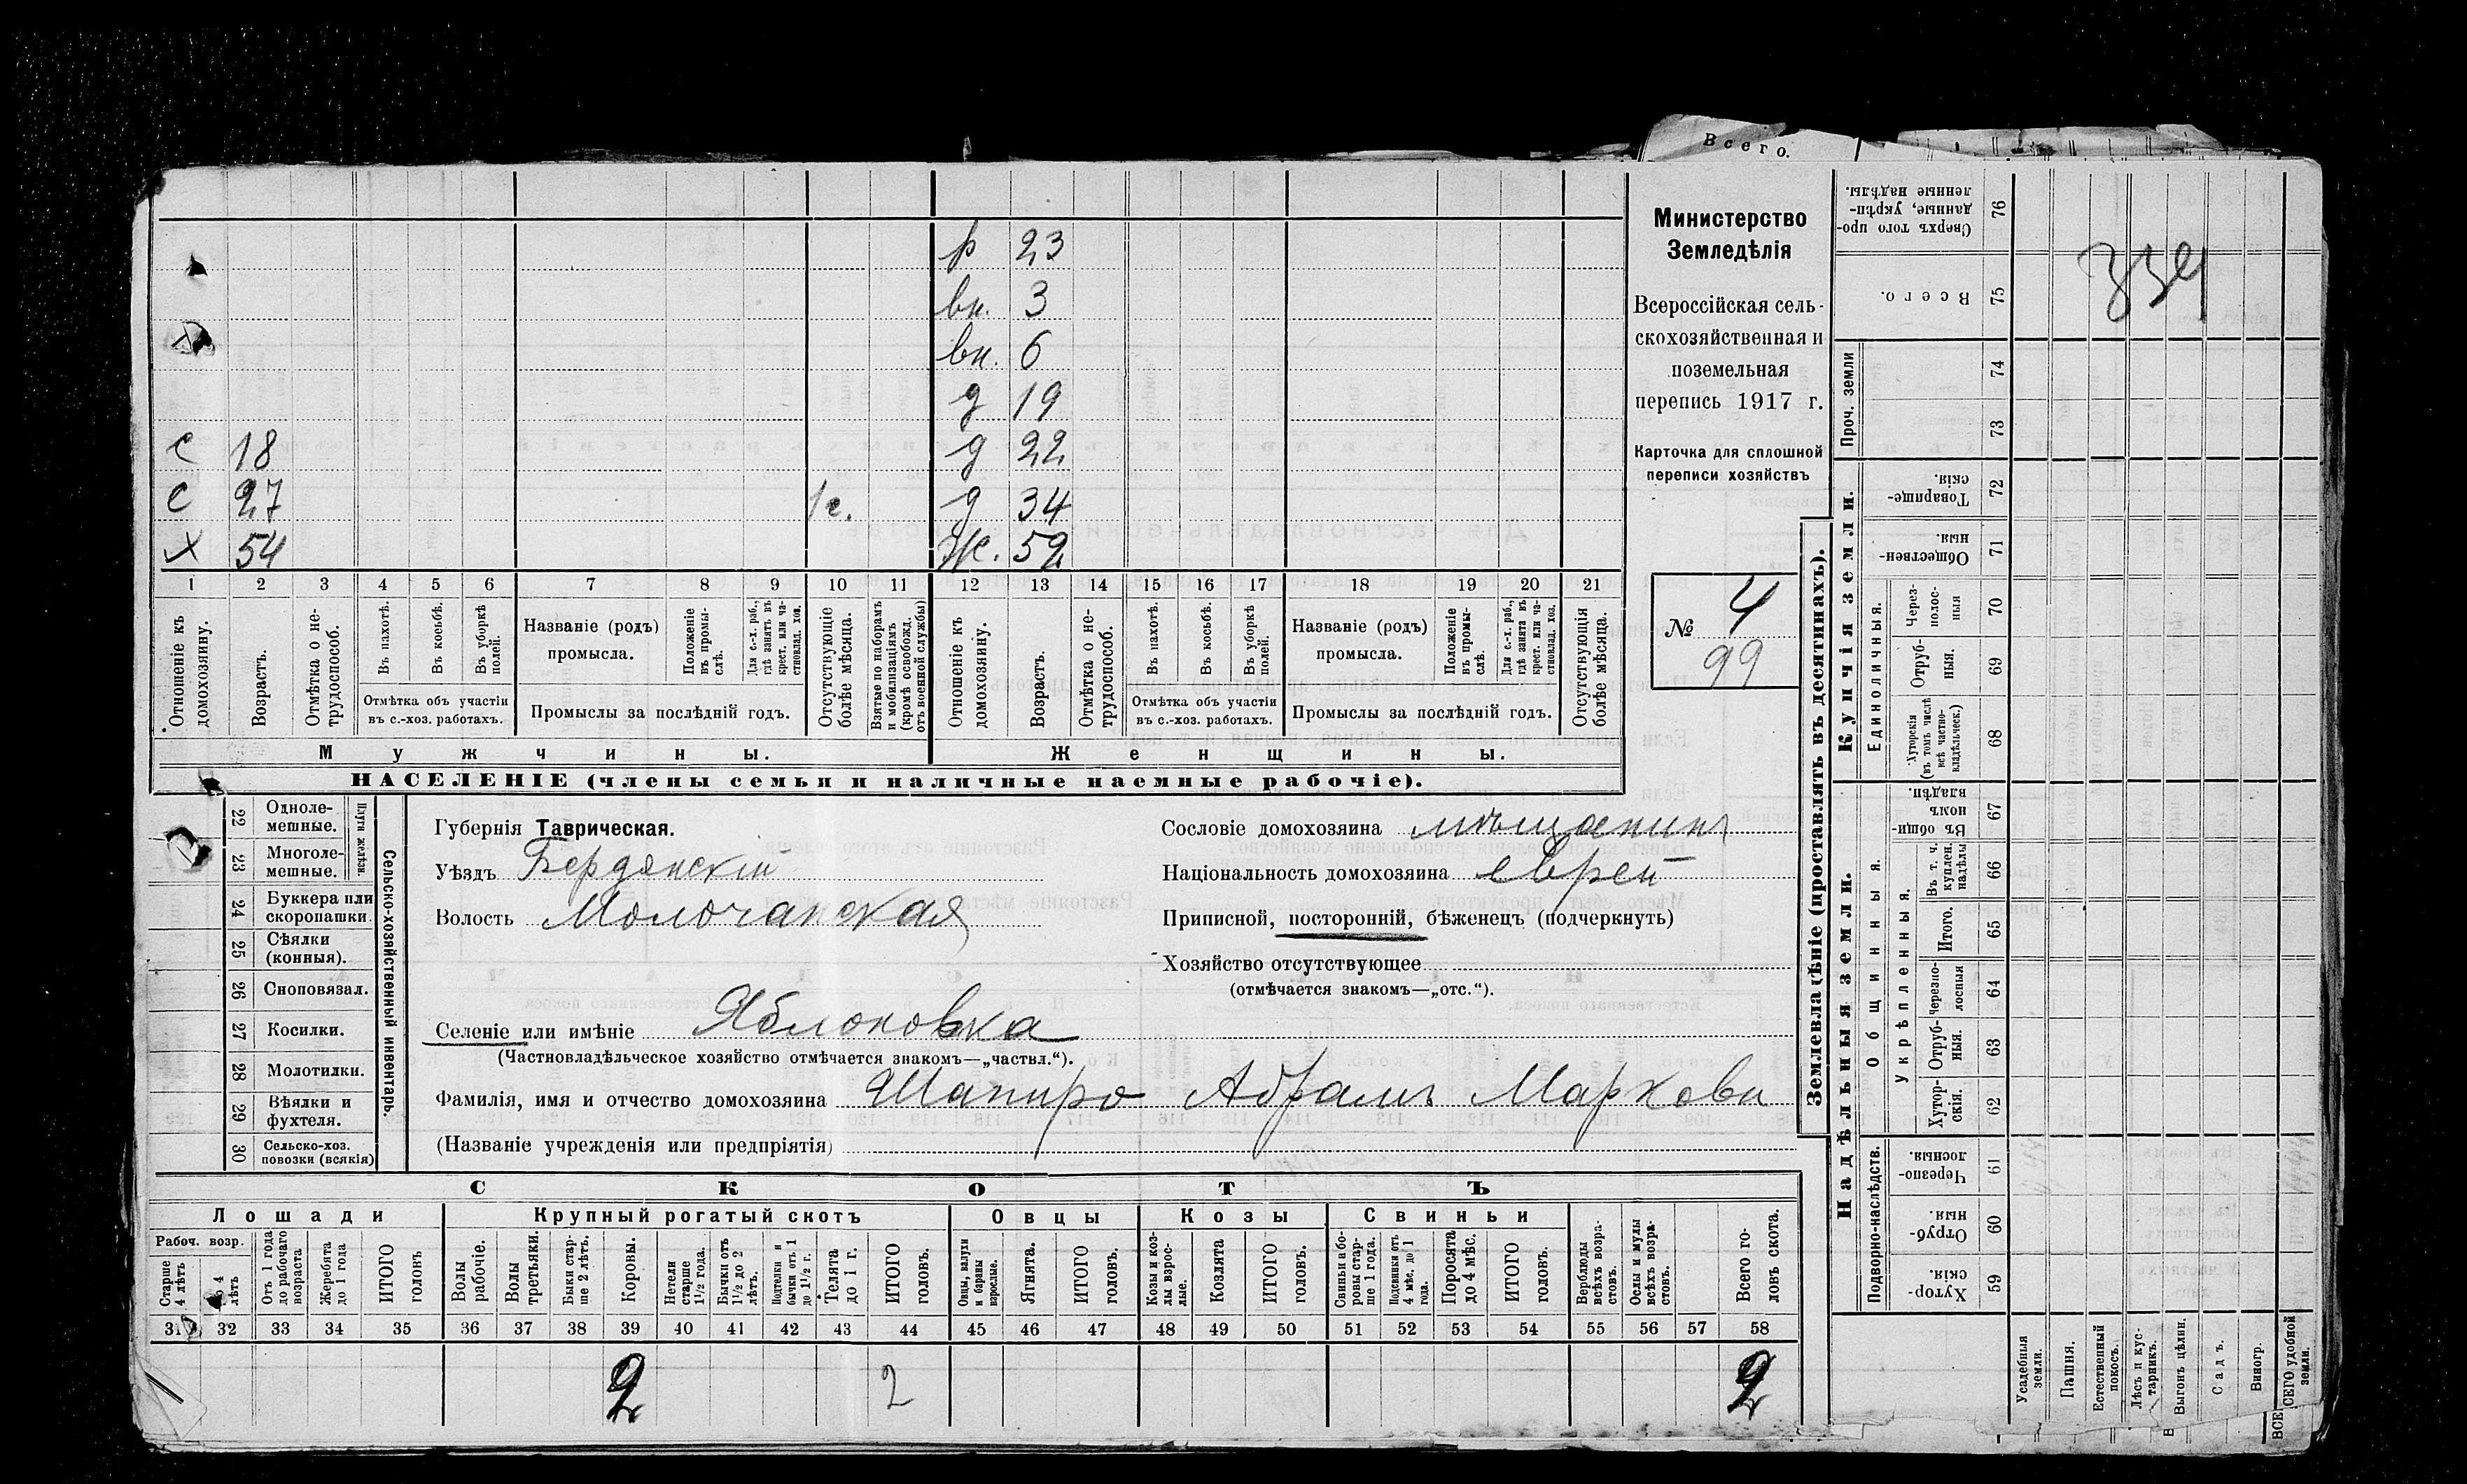 Всего.
р 23
вн. 3
вн. 6
д 19
с 18 д 22
с 27 1с. д 34
х 54 ж. 52
1 2 3 4 5 6 7 8 9 10 11 12 13 14 15 16 17 18 19 20 21
Отношеніе къ домохозяину.
Возрастъ.
Отмѣтка о не-
трудоспособ.
Въ пахотѣ.
Въ косьбѣ.
Въ уборкѣ
полей.
Отмѣтка объ участіи
въ с.-хоз. работахъ.
Названіе (родъ)
промысла.
Положеніе
въ промы-
слѣ.
Для с.-х. раб.,
гдѣ занятъ въ
крест. или ча-
стновлад. хоз.
Промыслы за послѣдній годъ.
Отсутствующіе
болѣе мѣсяца.
Взятые по наборамъ
и мобилизаціямъ
(кромѣ освобожд.
отъ военной службы)
Отношеніе къ
домохозяину.
Возрастъ.
Отмѣтка о не-
трудоспособ.
Въ пахотѣ.
Въ косьбѣ.
Въ уборкѣ
полей.
Отмѣтка объ участіи
въ с.-хоз. работахъ.
Названіе (родъ)
промысла.
Положеніе
въ промы-
слѣ.
Для с.-х. раб.,
гдѣ занята въ
крест. или ча-
стновлад. хоз.
Промыслы за послѣдній годъ.
Отсутствующія
болѣе мѣсяца.
Мужчины.
Женщины.
НАСЕЛЕНІЕ (члены семьи и наличные наемные рабочіе).
Министерство
Земледѣлія
Всероссійская сель-
скохозяйственная и
поземельная
перепись 1917 г.
Карточка для сплошной
переписи хозяйствъ
№ 4
99
22 Одноле-
мешные.
23 Многоле-
мешные.
Плуги желѣзн.
24 Буккера или
скоропашки.
25 Сѣялки
(конныя).
26 Сноповязал.
27 Косилки.
28 Молотилки.
29 Вѣялки и
фухтеля.
30 Сельско-хоз.
повозки (всякія)
Сельско-хозяйственный инвентарь.
Губернія Таврическая.
Уѣздъ Бердянскій
Волость Молочанская
Селеніе или имѣніе Яблоновка
(Частновладѣльческое хозяйство отмѣчается знакомъ—„частвл.“).
Фамилія, имя и отчество домохозяина Шапиро Абрамъ Маркови
(Названіе учрежденія или предпріятія)
Сословіе домохозяина мѣщанинъ
Національность домохозяина еврей
Приписной, посторонній, бѣженецъ (подчеркнуть)
Хозяйство отсутствующее
(отмѣчается знакомъ—„отс.“).
СКОТЪ
Лошади
Рабоч. возр.
Старше
4 лѣтъ
До 4
лѣтъ
Отъ 1 года
до рабочаго
возраста
Жеребята
до 1 года
ИТОГО
головъ
Крупный рогатый скотъ
Волы
рабочіе.
Волы
третьяки.
Быки стар-
ше 2 лѣтъ.
Коровы.
Нетели
старше
1½ года.
Бычки отъ
1½ до 2
лѣтъ.
Подтелки и
бычки отъ 1
до 1½ г.
Телята
до 1 г.
ИТОГО
головъ.
Овцы
Овцы, валухи
и бараны
взрослые.
Ягнята.
ИТОГО
головъ.
Козы
Козы и коз-
лы взрос-
лые.
Козлята
ИТОГО
головъ.
Свиньи
Свиньи и бо-
ровы стар-
ше 1 года.
Подсвинки отъ
4 мѣс. до 1
года.
Поросята
до 4 мѣс.
ИТОГО
головъ.
Верблюды
всѣхъ возра-
стовъ.
Ослы и мулы
всѣхъ возра-
стовъ.
Всего го-
ловъ скота.
31 32 33 34 35 36 37 38 39 40 41 42 43 44 45 46 47 48 49 50 51 52 53 54 55 56 57 58
2 2 2
Землевладѣніе (проставлять въ десятинахъ).
Сверхъ того про-
данные, укрѣп-
ленные надѣлы.
76
Всего.
75
334
Проч. земли
74
73
Купчія земли.
Товарище-
скія.
72
Обществен-
ныя.
71
Единоличныя.
Через-
полос-
ныя
70
Отруб-
ныя.
69
Хуторскія
(въ томъ числѣ
всѣ частно-
владѣльческ.)
68
Надѣльныя земли.
Общинныя.
Въ общин-
номъ
владѣн.
67
Укрѣпленныя.
Въ т. ч.
куплен.
надѣлы
66
Итого.
65
Черезпо-
лосныя
64
Отруб-
ныя.
63
Хутор-
скія.
62
Подворно-наслѣдств.
Черезпо-
лосныя.
61
Отруб-
ныя.
60
Хутор-
скія.
59
Усадебныя
земли.
Пашня.
Естественный
покосъ.
Лѣсъ и кус-
тарникъ.
Выгонъ цѣлин.
Садъ.
Виногр.
ВСЕГО удобной
земли.